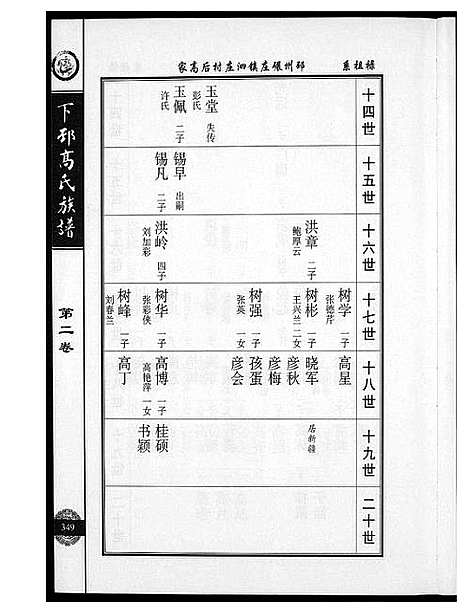 下邳高氏族谱
第二卷
349
禄祖系
邳州碾庄镇泗庄村后高家
十四世
玉堂
彭氏
失传
玉佩
许氏
二子
十五世
锡早
出嗣
锡凡
二子
十六世
洪章
鲍厚云
二子
洪岭
刘加彩
四子
十七世
树学
张德芹
一子
树彬
王兴兰
一子二女
树强
张英
一子一女
树华
张彩侠
一子
树峰
刘春兰
一子
十八世
高星
晓军
彦秋
彦梅
孩蛋
彦会
高博
高艳萍
一子一女
高丁
十九世
居新疆
桂硕
书颖
二十世